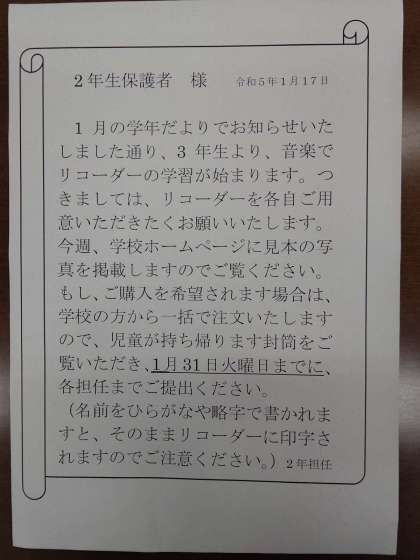 2年生保護者　様　　令和5年1月17日
1月の学年だよりでお知らせいた
しました通り、3年生より、音楽で
リコーダーの学習が始まります。つ
きましては、リコーダーを各自ご用
意いただきたくお願いいたします。
今週、学校ホームページに見本の写
真を掲載しますのでご覧ください。
もし、ご購入を希望されます場合は、
学校の方から一括で注文いたします
ので、児童が持ち帰ります封筒をご
覧いただき、1月31日火曜日までに、
各担任までご提出ください。
（名前をひらがなや略字で書かれま
すと、そのままリコーダーに印字さ
れますのでご注意ください。）2年担任